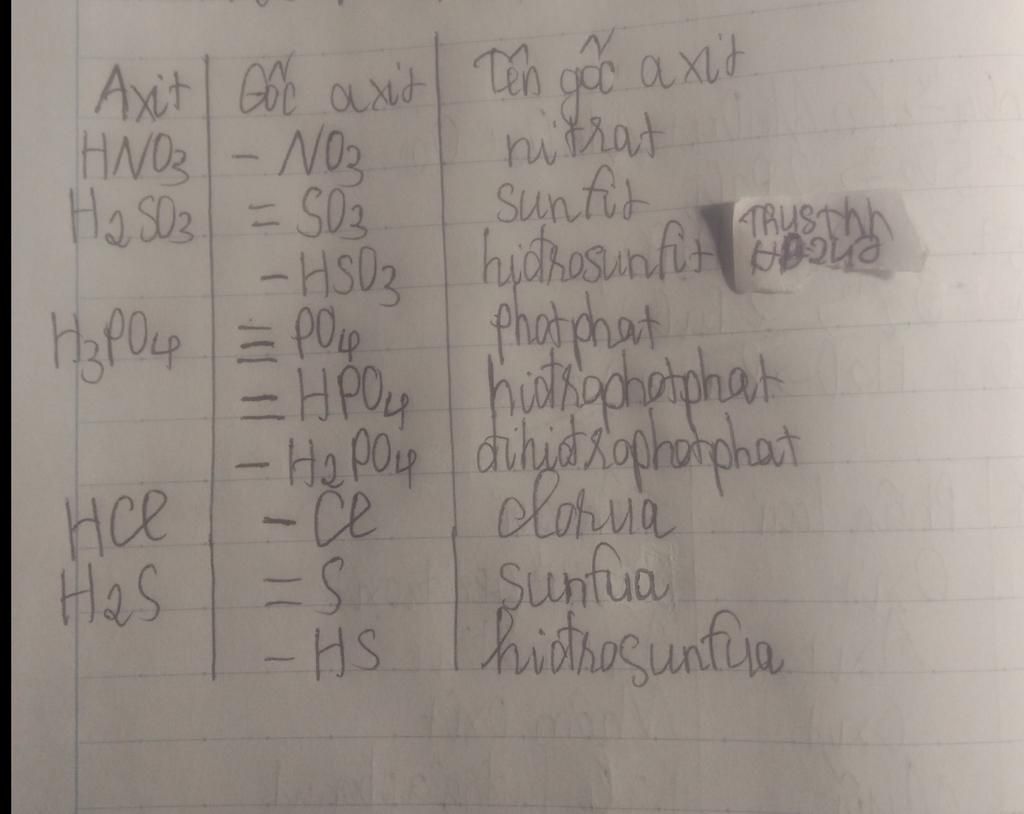 Axit Gốc axit Tên gốc axit
HNO3 - NO3 nitrat
H2SO3 = SO3 sunfit
- HSO3 hiđrosunfit
TRUSThh
H3PO4 ≡ PO4 photphat
= HPO4 hiđrophotphat
- H2PO4 đihiđrophotphat
HCl - Cl clorua
H2S = S sunfua
- HS hiđrosunfua